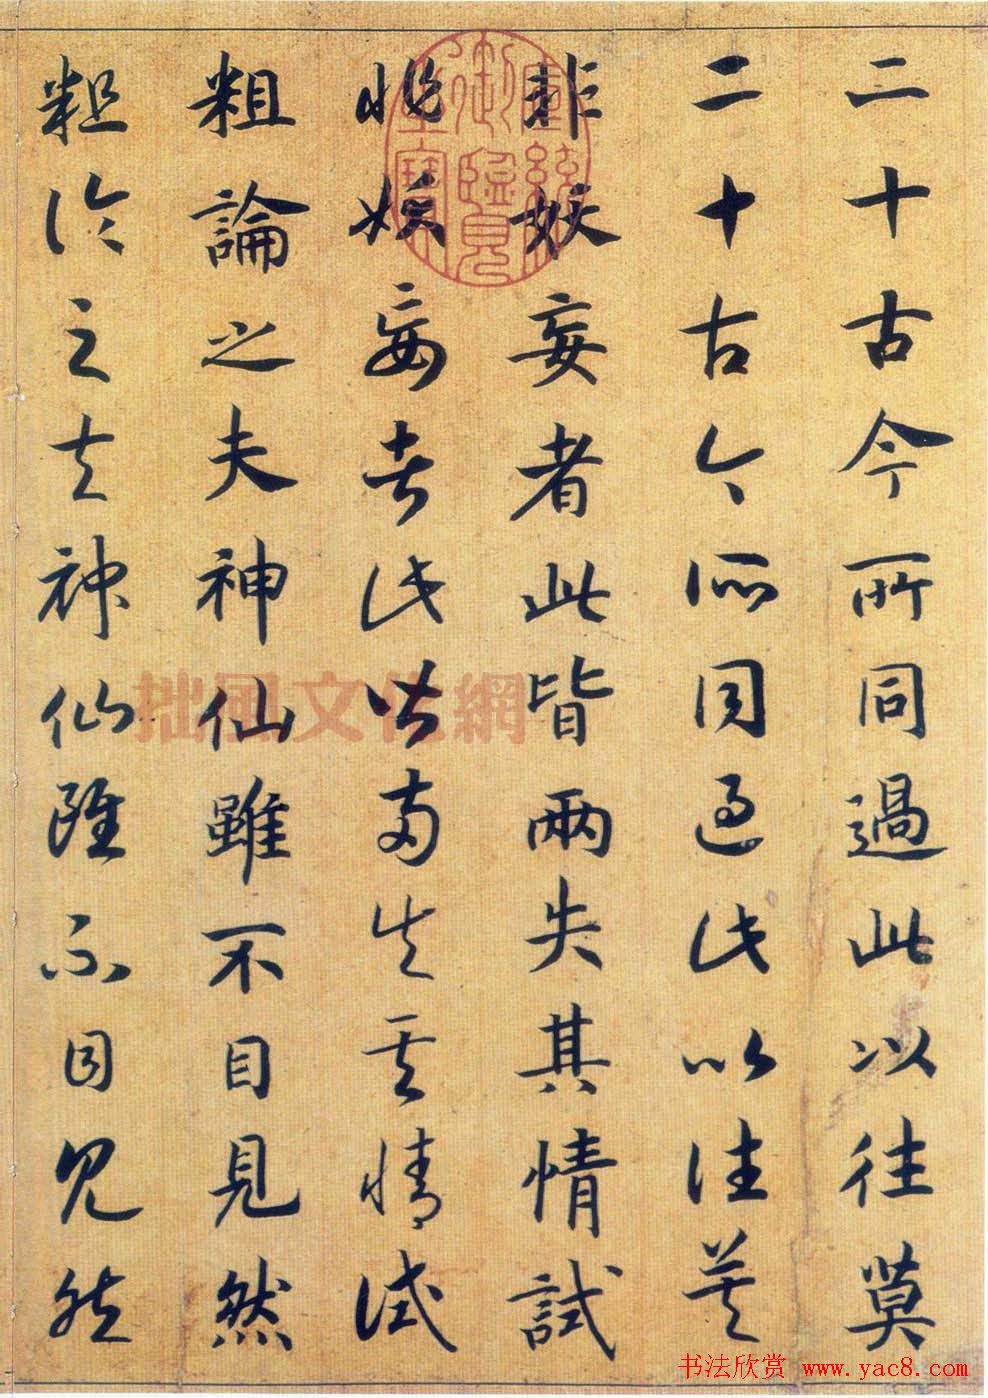 二十古今所同過此以往莫
二十古今所同過此以往莫
非妖妄者此皆兩失其情試
非妖妄者此皆兩失其情試
粗論之夫神仙雖不目見然
粗論之夫神仙雖不目見然
宣統御覽之寶
拙風文化網
书法欣赏 www.yac8.com